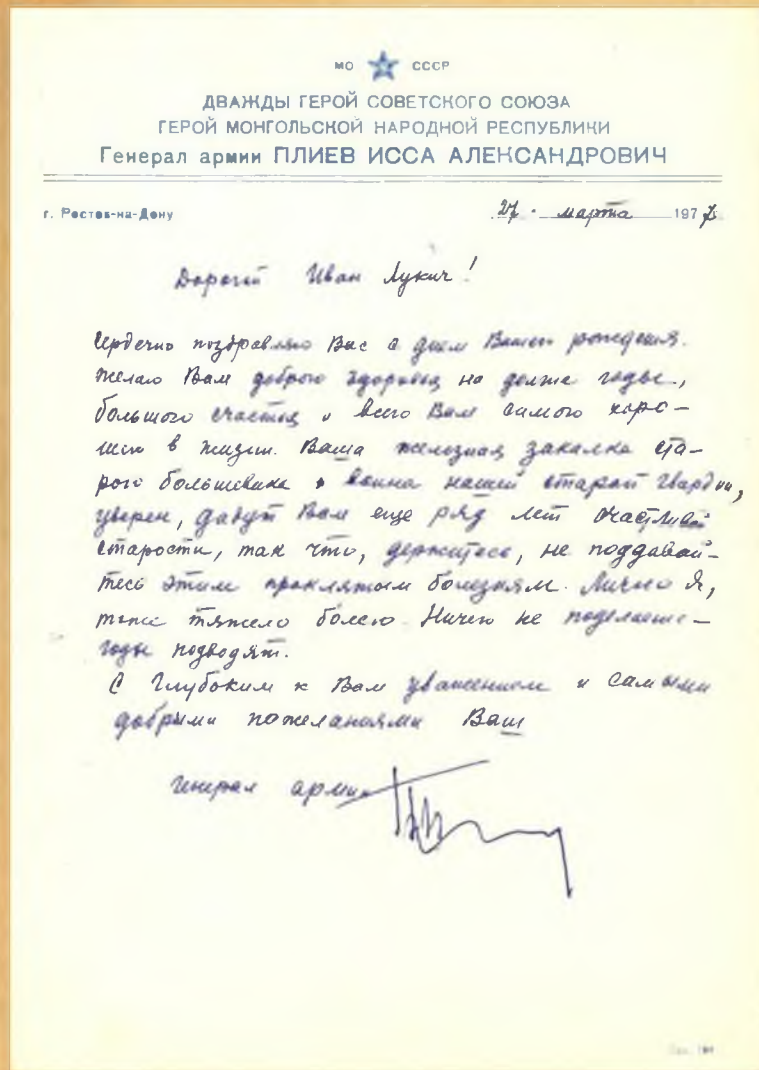 МО СССР
ДВАЖДЫ ГЕРОЙ СОВЕТСКОГО СОЮЗА
ГЕРОЙ МОНГОЛЬСКОЙ НАРОДНОЙ РЕСПУБЛИКИ
Генерал армии ПЛИЕВ ИССА АЛЕКСАНДРОВИЧ
г. Ростов-на-Дону 27. марта 197
Дорогой Иван Лукич!
Сердечно поздравляю Вас с днем Вашего рождения.
Желаю Вам доброго здоровья на долгие годы,
большого счастья и всего Вам самого хоро-
шего в жизни. Ваша железная закалка ста-
рого большевика и воина нашей старой гвардии,
уверен, дадут Вам еще ряд лет счастливой
старости, так что, держитесь, не поддавай-
тесь этим проклятым болезням. Лично я,
тоже тяжело болею. Ничего не поделаешь-
годы подводят.
С глубоким к Вам уважением и самыми
добрыми пожеланиями Ваш
генерал армии